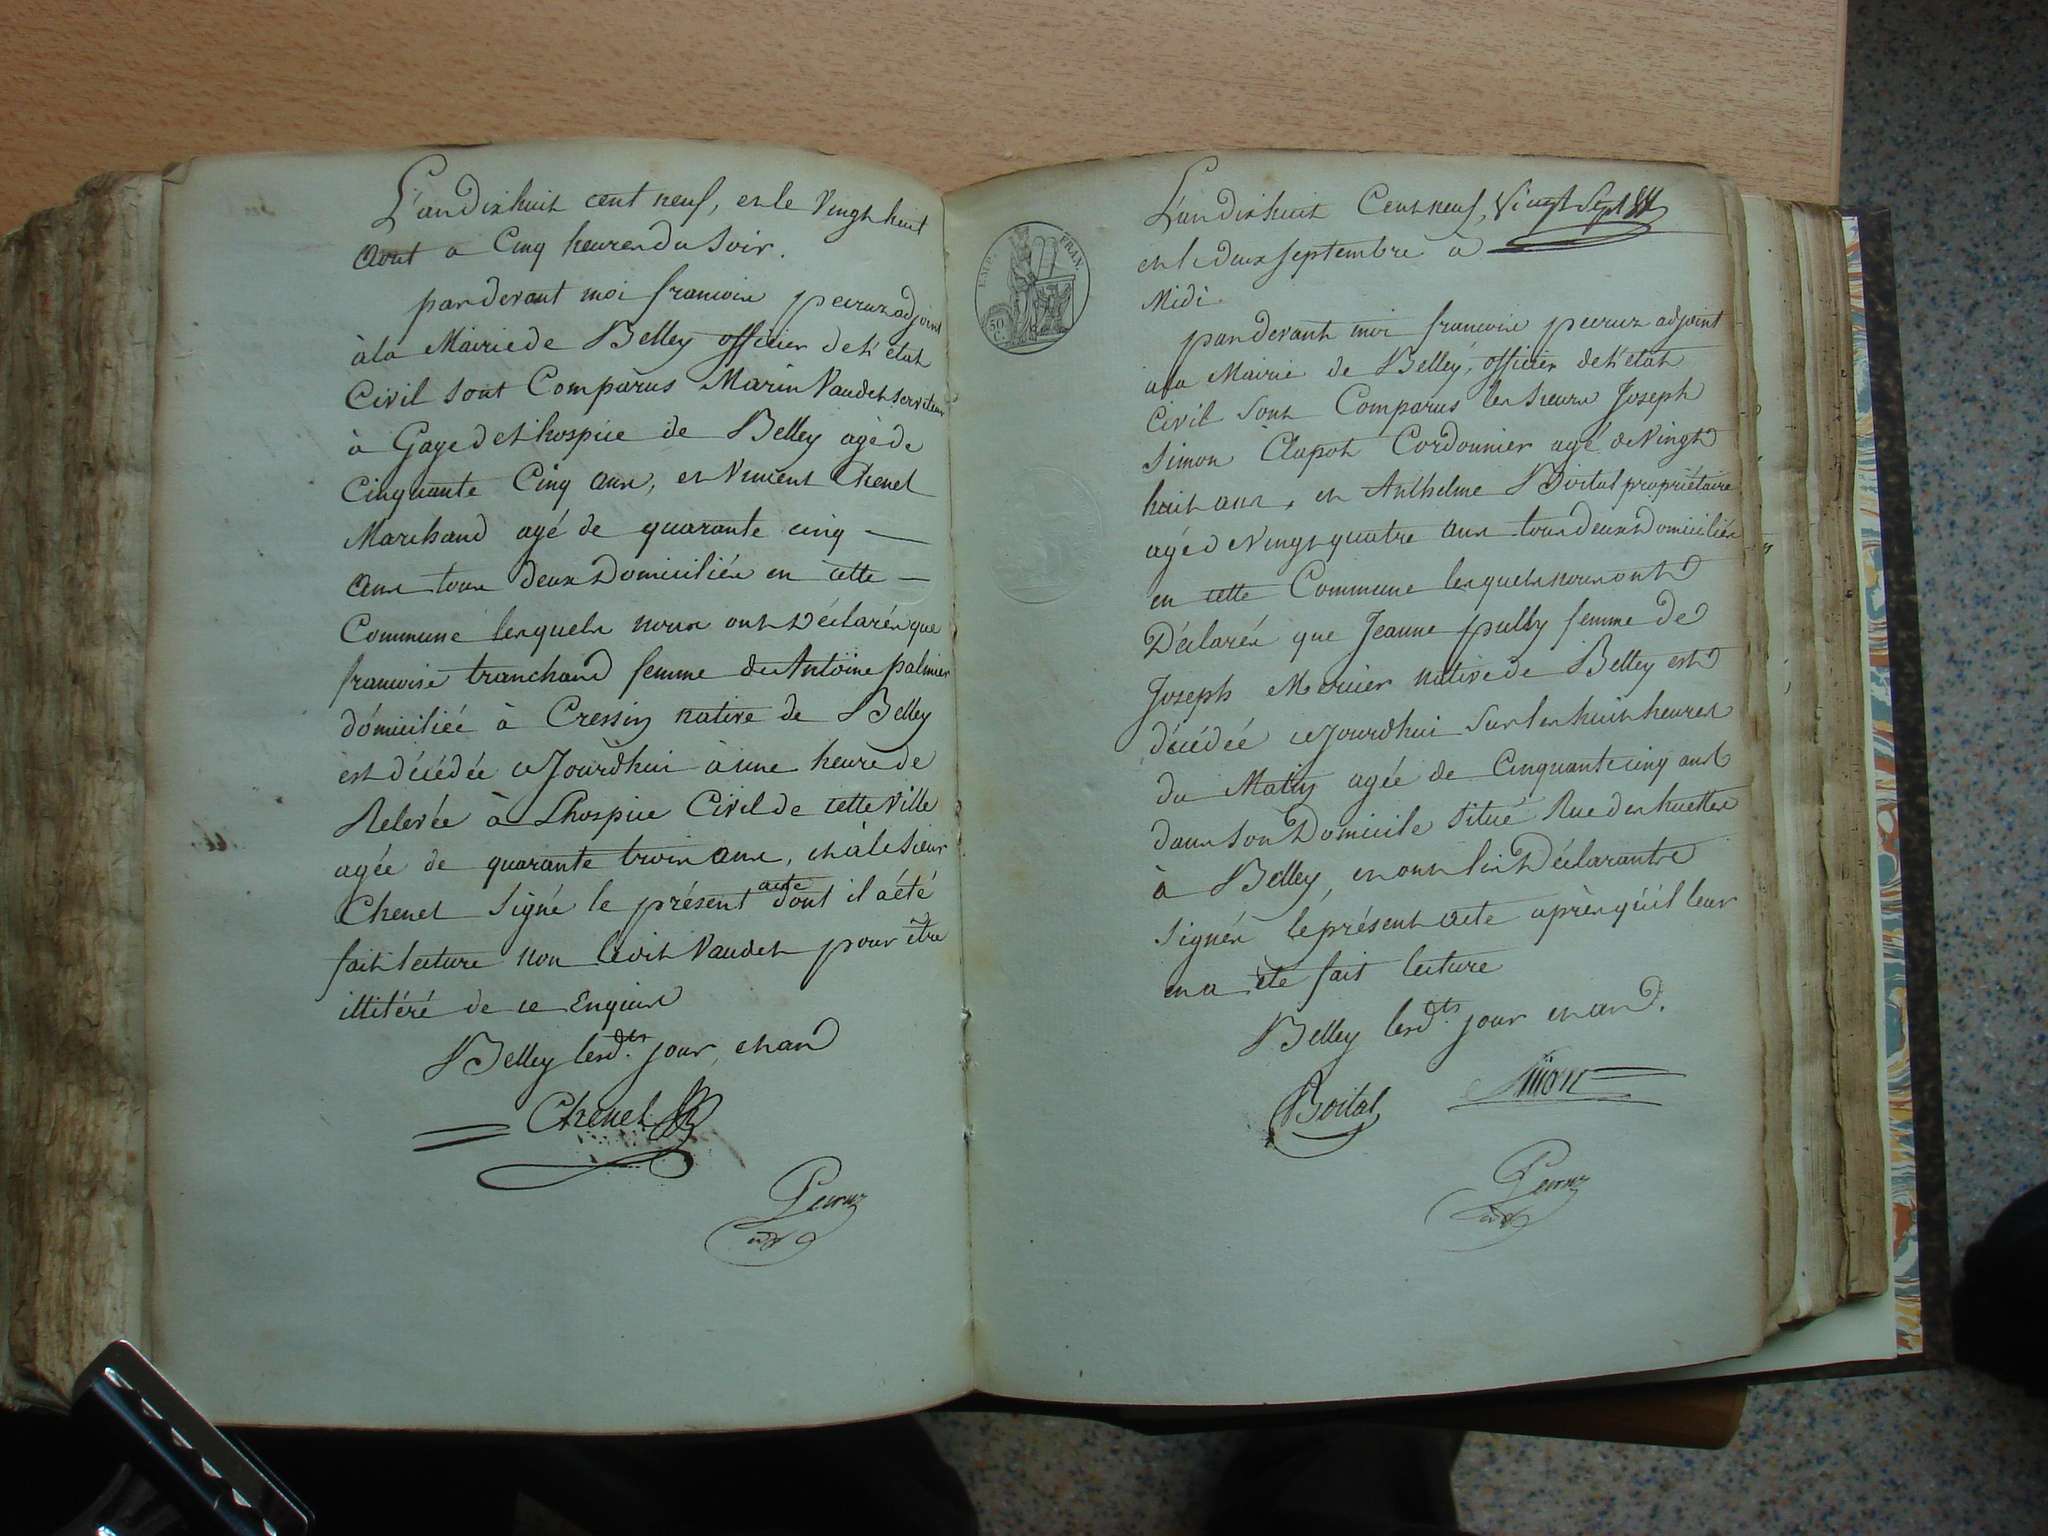 L'an Dix huit cent neuf, et le Vingt huit
Aout a Cinq heures du Soir.
par devant moi francois peyruz adjoint
à la Mairie de Belley officier de l'état
Civil sont Comparus Marin Vaudet serviteur
à Gage de l'hospice de Belley agé de
Cinquante Cinq ans, et Vincent Chenel
Marchand agé de quarante cinq
ans tous deux Domiciliés en cette
Commune lesquels nous ont Déclarés que
francoise tranchand femme de Antoine palmier
domiciliée à Cressin native de Belley
est décédée cejourdhui à une heure de
Relevée à Lhospice Civil de cette Ville
agée de quarante trois ans, et à le Sieur
Chenel Signé le présent acte dont il a été
fait lecture non ledit Vaudet pour être
illitéré de ce Enquis
Belley lesdts. jour et an
Chenel
Peyruz
adjt
EMP. FRAN.
50
C.
L'an Dix huit Cent neuf, Vingt Sept
et le deux septembre a
Midi.
par devant moi francois peyruz adjoint
a la Mairie de Belley, officier de l'état
Civil Sont Comparus les sieurs Joseph
Simon Clapot Cordonnier agé de Vingt
huit ans, et Anthelme Boital propriétaire
agé de Vingt quatre ans tous deux Domiciliés
en cette Commune lesquels nous ont
Déclarés que Jeanne pully femme de
Joseph Mercier native de Belley est
décédée cejourdhui sur les huit heures
du Matin agée de Cinquante cinq ans
dans son Domicile situé Rue des huettes
à Belley, et ont les Déclarants
signés le présent acte après qu'il leur
en a été fait lecture
Belley lesdts. jour et an.
Boital
Simon
Peyruz
adjt